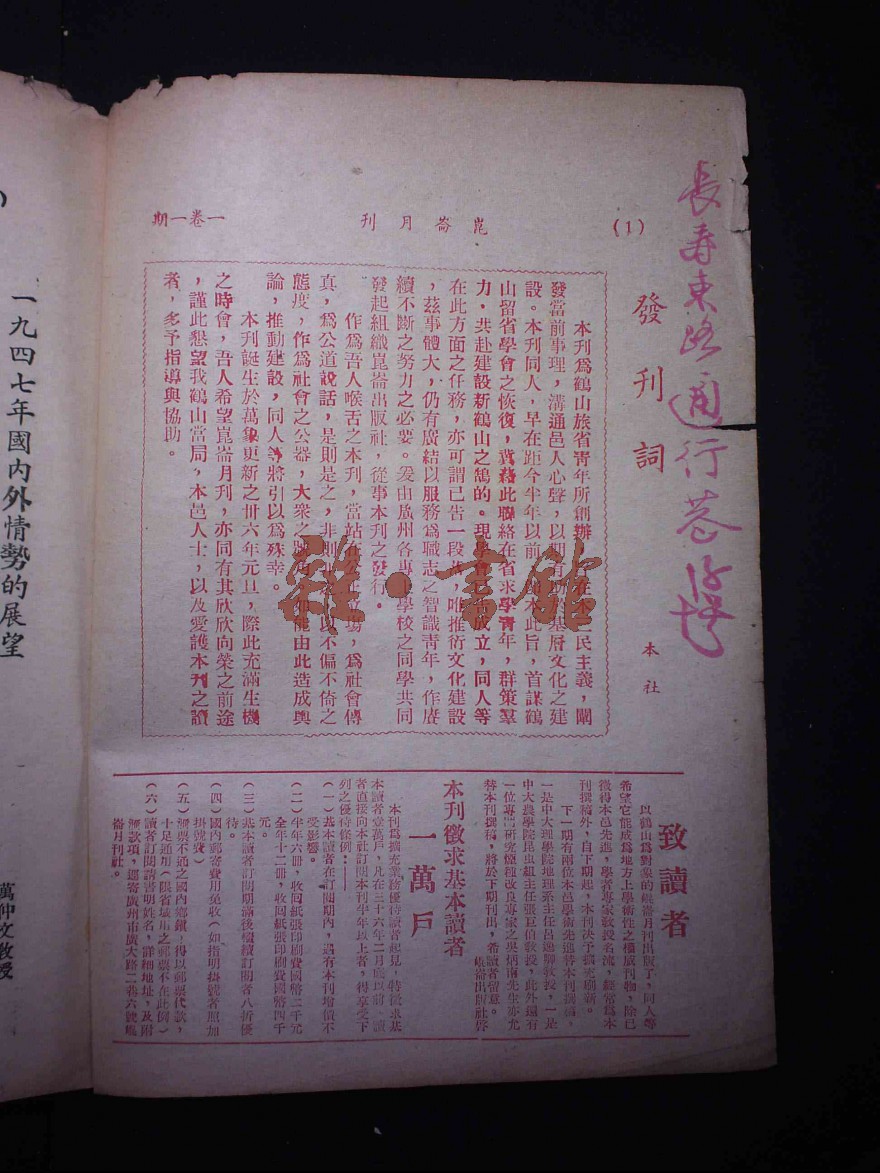 (1)
崑崙月刊
一卷一期
長壽東路通行巷
發刊詞
本社
本刊爲鶴山旅省靑年所創辦
民主義,闡
發當前事理,溝通邑人心聲,以期
基層文化之建
設。本刊同人,早在距今半年以前
本此旨,首謀鶴
山留省學會之恢復,冀藉此聯絡在省求學靑年,群策羣
力,共赴建設新鶴山之鵠的。現學會
成立,同人等
在此方面之任務,亦可謂已吿一段
唯推衍文化建設
,茲事體大,仍有廣結以服務爲職志之智識靑年,作賡
續不斷之努力之必要。爰由廣州各專
學校之同學共同
發起組織崑崙出版社,從事本刊之發行。
作爲吾人喉舌之本刊,當站在
塲,爲社會傳
眞,爲公道說話,是則是之,非則
以不偏不倚之
態度,作爲社會之公器,大衆之
能由此造成輿
論,推動建設,同人等將引以爲殊幸。
本刊誕生於萬象更新之卅六年元旦,際此充滿生機
之時會,吾人希望崑崙月刊,亦同有其欣欣向榮之前途
,謹此懇望我鶴山當局,本邑人士,以及愛護本刊之讀
者,多予指導與協助。
致讀者
以鶴山爲對象的崑崙月刊出版了,同人等
希望它能成爲地方上學術性之權威刊物,除已
徵得本邑先進,學者專家敎授名流,經常爲本
刊撰稿外,自下期起,本刊決予擴充刷新。
下一期有兩位本邑學術先進替本刊撰稿,
一是中大理學院地理系主任
敎授,一是
中大農學院昆虫組主任張巨伯敎授,此外還有
一位專門硏究煙種改良專家之吳
先生亦允
替本刊撰稿,將於下期刊出,希讀者留意。
崑崙出版社啓
本刊徵求基本讀者
一萬戶
本刊爲擴充業務優待讀者起見,特徵求基
本讀者壹萬戶,凡在三十六年二月底以前,讀
者直接向本社訂閱本刊半年以上者,得享受下
列之優待條例:——
(一)基本讀者在訂閱期內,遇有本刊增價不
受影響。
(二)半年六册,收回紙張印刷費國幣二千元
全年十二册,收回紙張印刷費國幣四千
元。
(三)基本讀者訂閱期滿後繼續訂閱者八折優
待。
(四)國內郵寄費用免收(如指明掛號者照加
掛號費)
(五)滙票不通之國內鄉鎭,得以郵票代款,
十足通用(限省城用之郵票不在此例)
(六)讀者訂閱請書明姓名,詳細地址,及附
滙款項,逕寄廣州市廣大路二巷六號崑
崙月刊社。
一九四七年國內外情勢的展望
萬仲文敎授
雜·書館